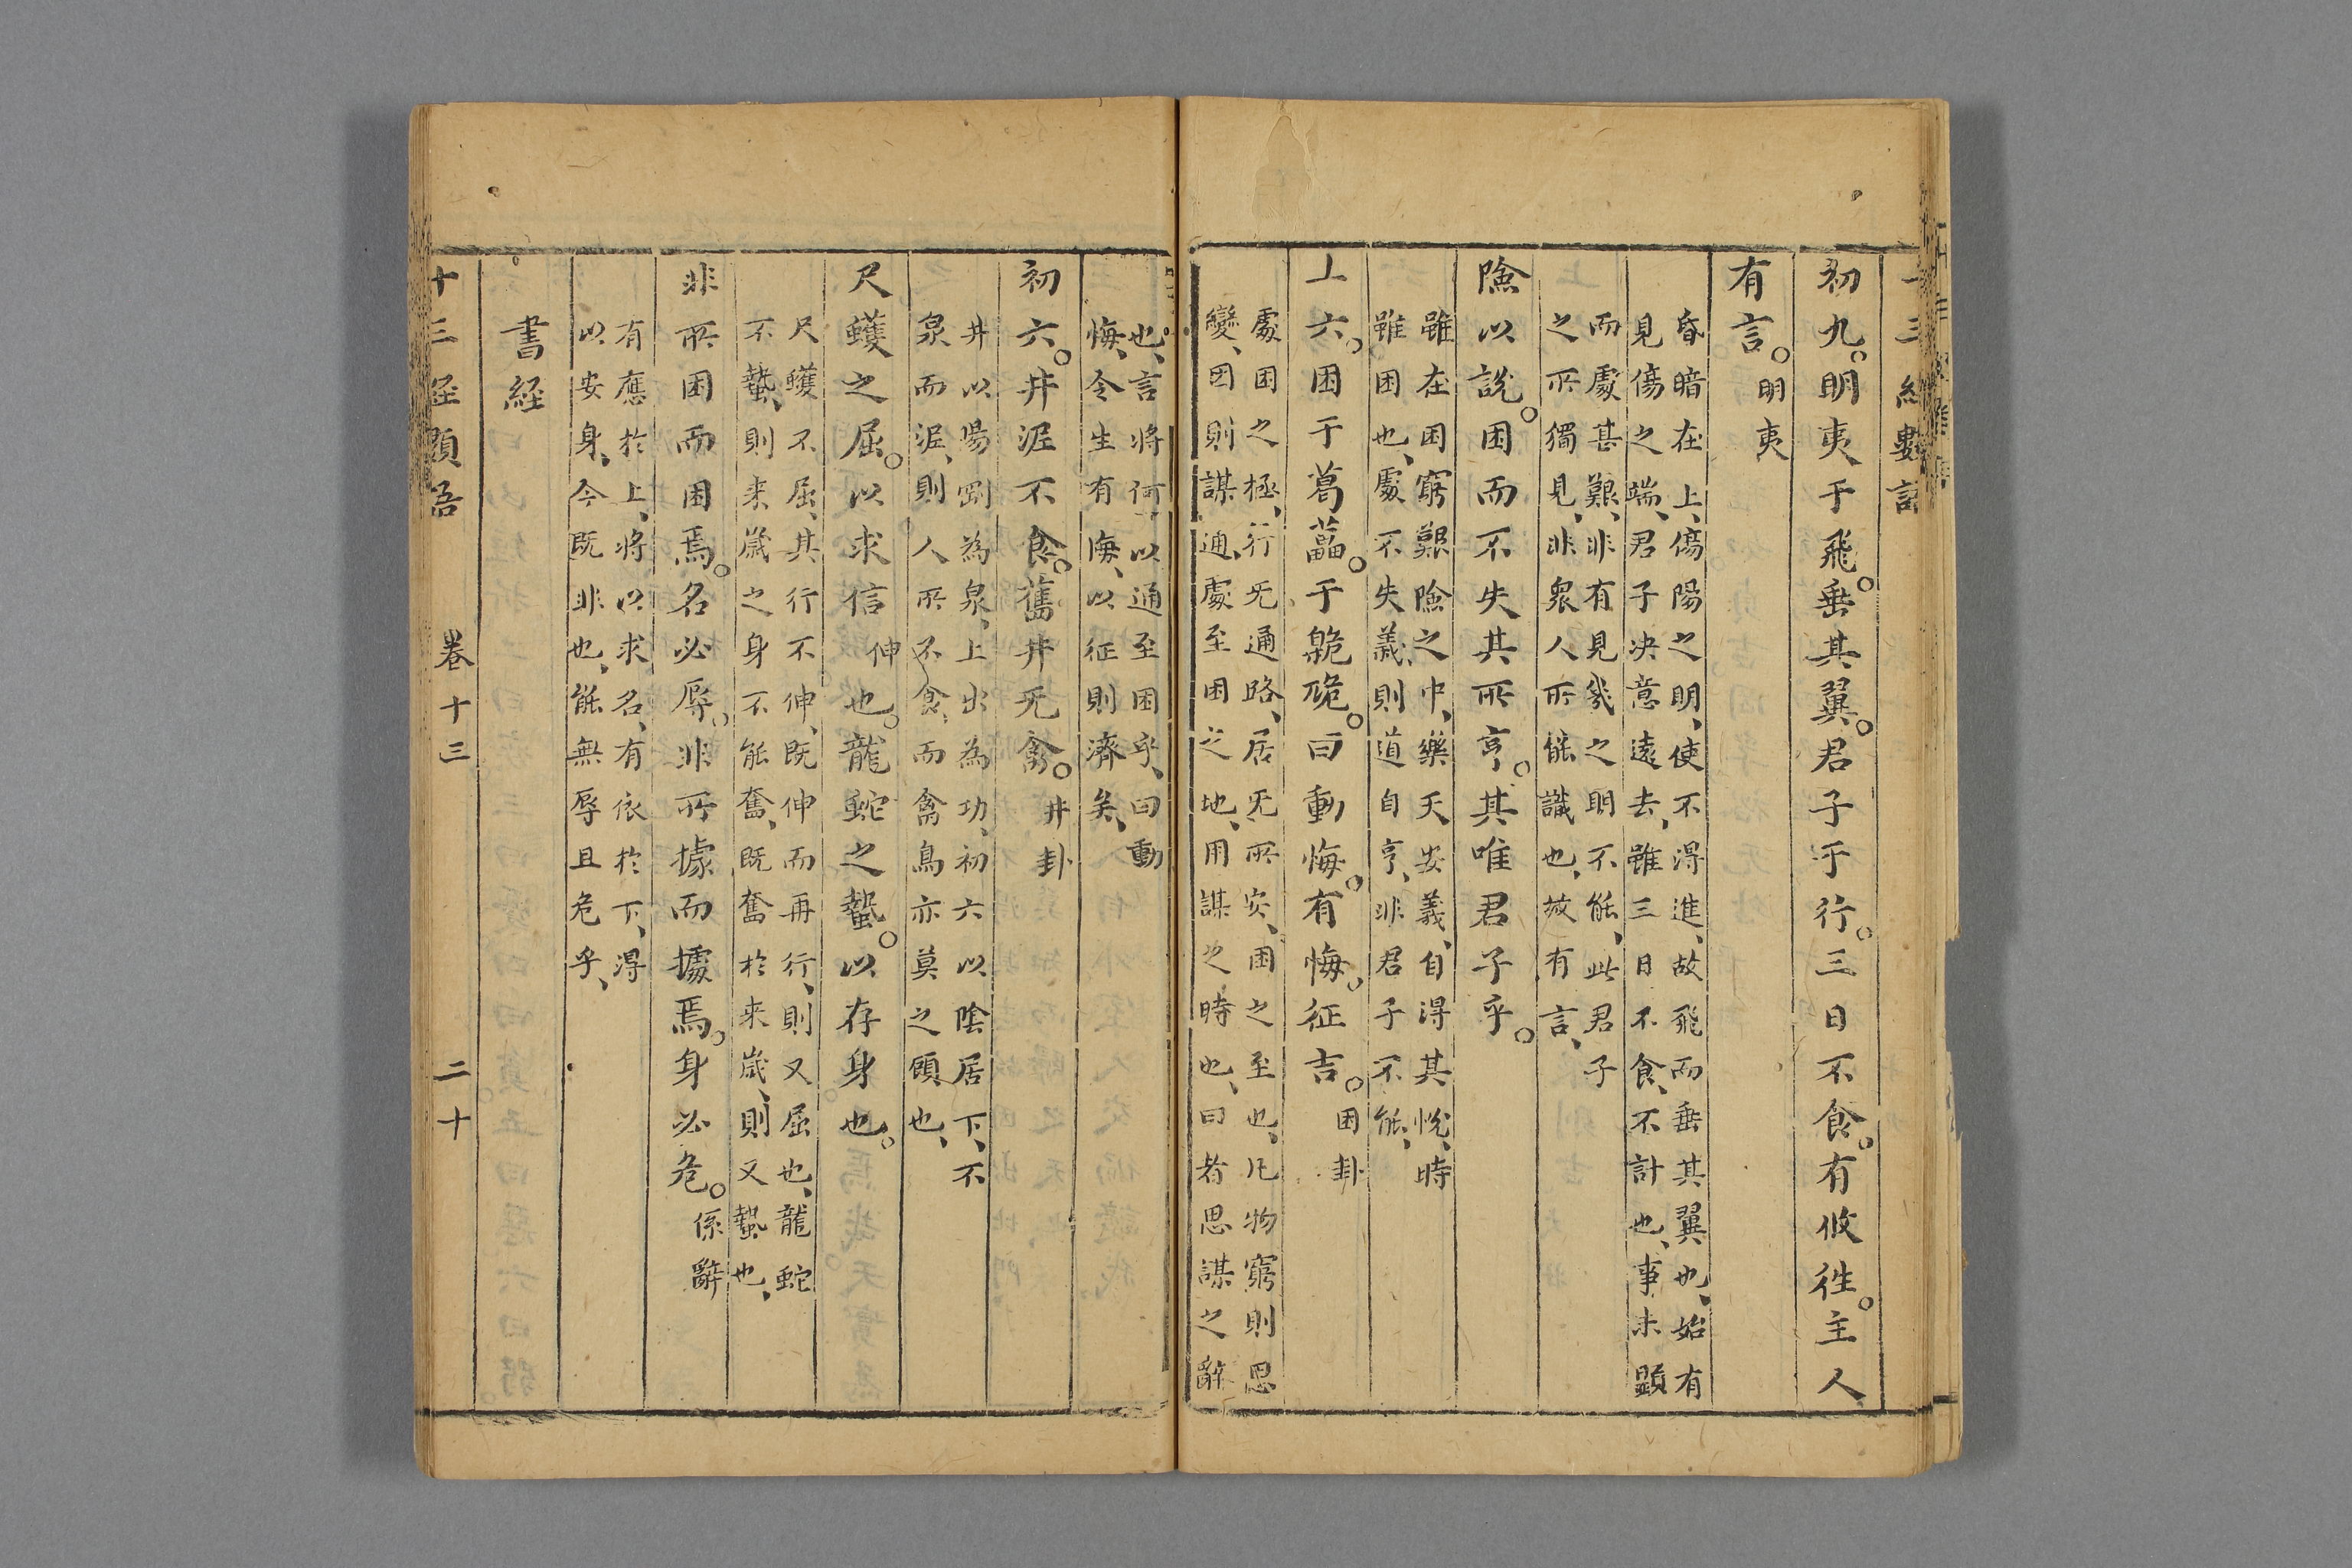 初九。明夷于飛。垂其翼。君子于行。三日不食。有攸往。主人
有言。明夷
昏暗在上、傷陽之明、使不得進、故飛而垂其翼也、始有
見傷之端、君子决意遠去、雖三日不食、不計也、事未顯
而處甚艱、非有見幾之明不能、此君子
之所獨見、非衆人所能識也、故有言、
險以說。困而不失其所亨。其唯君子乎。
雖在困窮艱險之中、樂天安義、自得其悅、時
雖困也、處不失義、則道自亨、非君子不能、
上六。困于葛藟。于臲卼。曰動悔。有悔。征吉。困卦
處困之極、行旡通路、居旡所安、困之至也、凡物窮則思
變、困則謀通、處至困之地、用謀之時也、曰者思謀之辭
也、言將何以通至困乎、曰動
悔、令生有悔、以征則濟矣、
初六。井泥不食。舊井旡禽。井卦
井以陽剛為泉、上出為功、初六以陰居下、不
泉而泥、則人所不食、而禽鳥亦莫之顧也、
尺蠖之屈。以求信伸也。龍蛇之蟄。以存身也。
尺蠖不屈、其行不伸、既伸而再行、則又屈也、龍蛇
不蟄、則来歲之身不能奮、既奮於来歲、則又蟄也、
非所困而困焉。名必辱。非所據而據焉。身必危。係辭
有應於上、將以求名、有依於下、得
以安身、今既非也、能無辱且危乎、
書経
十三経類
卷十三
二十